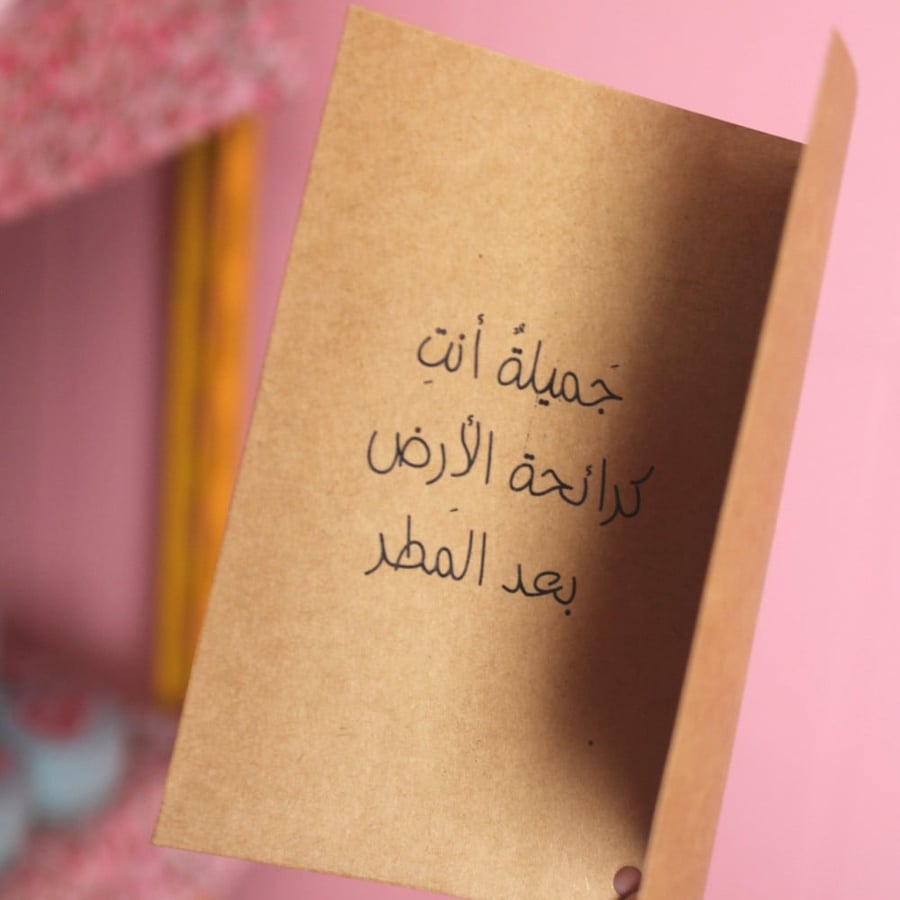 جَميلةٌ أنتِ
كرائحة الأرض
بعد المَطر